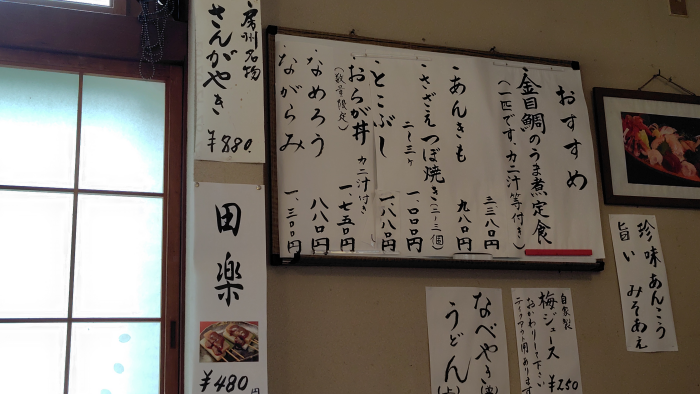 おすすめ
金目鯛のうま煮定食
(一匹です、カニ汁等付き)
三三八〇円
あんきも
九八〇円
さざえつぼ焼き(二~三個)
二~三ヶ
一、〇〇〇円
とこぶし
一、八八〇円
おらが丼
カニ汁付き
(数量限定)
一、七五〇円
なめろう
八八〇円
ながらみ
一、三〇〇円
房州名物
さんがやき
¥880.
田楽
¥480円
珍味あんこう
旨い みそあえ
自家製
梅ジュース
おかわりして下さい
テイクアウト用あります
¥250
なべやき
うどん